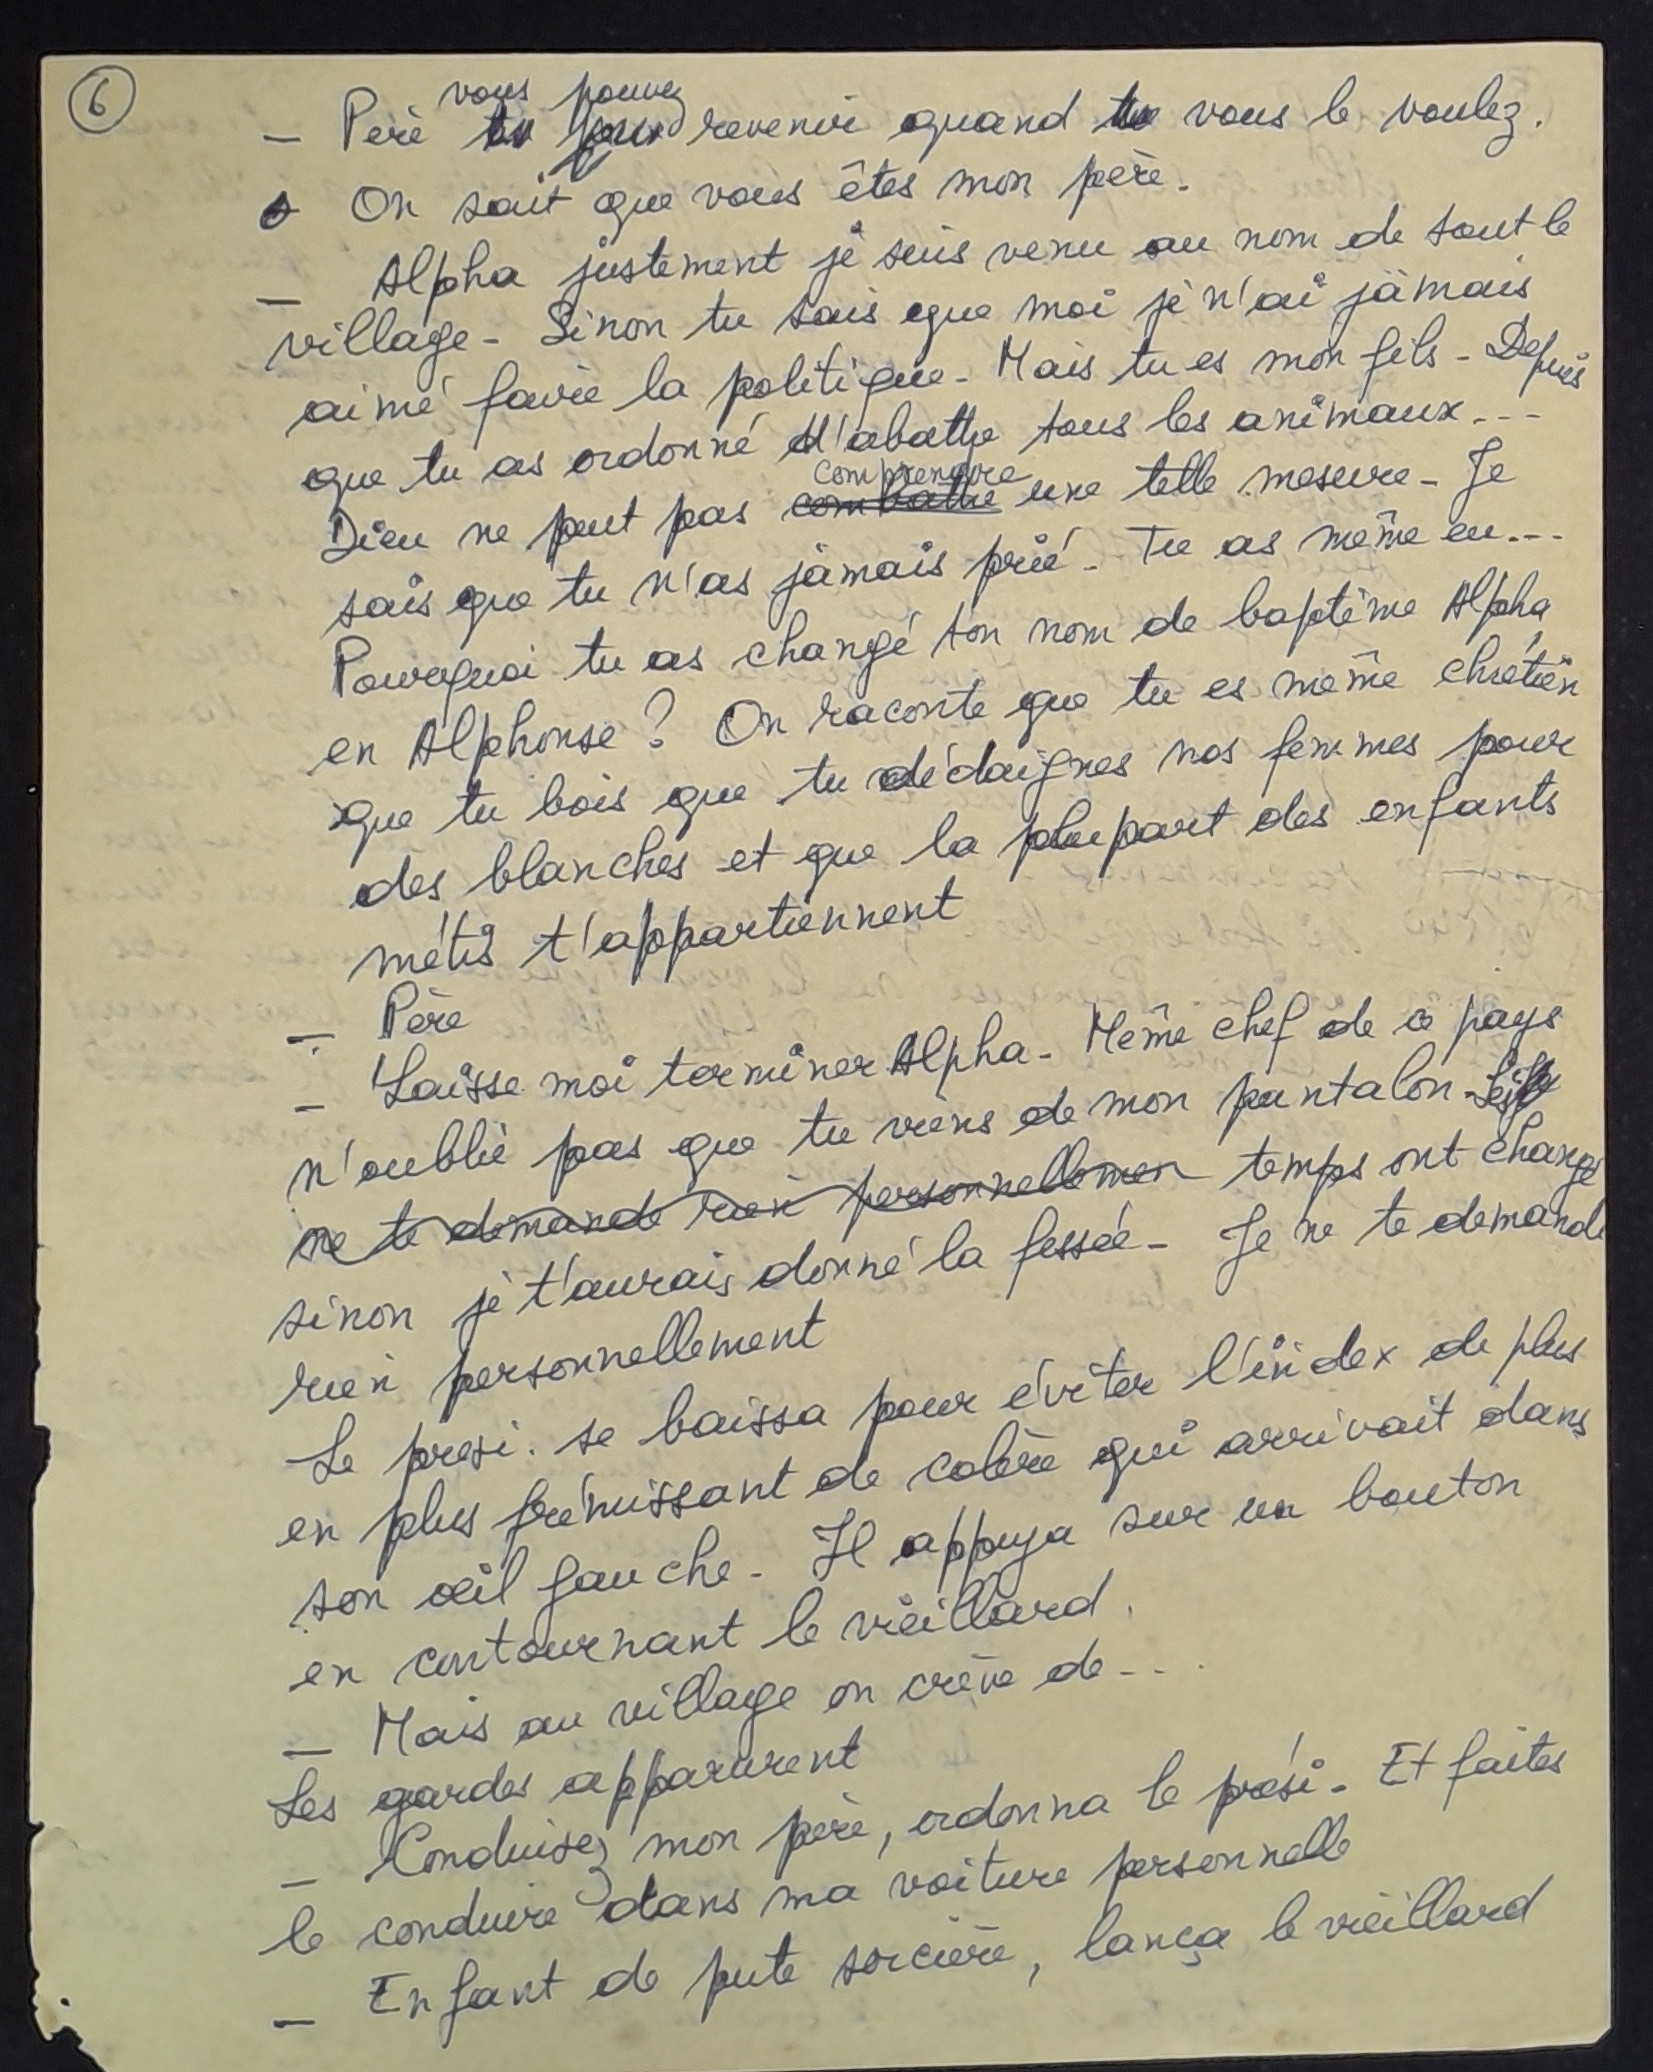 6
vous pouvez
— Père tu peux revenir quand tu vous le voulez.
On sait que vous êtes mon père.
— Alpha justement je suis venu au nom de tout le
village - Sinon tu sais que moi je n'ai jamais
aimé faire la politique - Mais tu es mon fils - Depuis
que tu as ordonné d'abattre tous les animaux...
comprendre
Dieu ne peut pas combattre une telle mesure - Je
sais que tu n'as jamais prié - Tu as même eu...
Pourquoi tu as changé ton nom de baptême Alpha
en Alphonse ? On raconte que tu es même chrétien
que tu bois que tu dédaignes nos femmes pour
des blanches et que la plupart des enfants
métis t'appartiennent
— Père
— Laisse moi terminer Alpha - Même chef de ce pays
n'oublie pas que tu viens de mon pantalon -
ne te demande rien personnellemen temps ont changé
sinon je t'aurais donné la fessée - Je ne te demande
rien personnellement
Le presi. se baissa pour éviter l'index de plus
en plus frémissant de colère qui arrivait dans
son œil gauche - Il appuya sur un bouton
en contournant le vieillard.
— Mais au village on crève de...
Les gardes apparurent
— Conduisez mon père, ordonna le prési - Et faites
le conduire dans ma voiture personnelle
— Enfant de pute sorcière, lança le vieillard